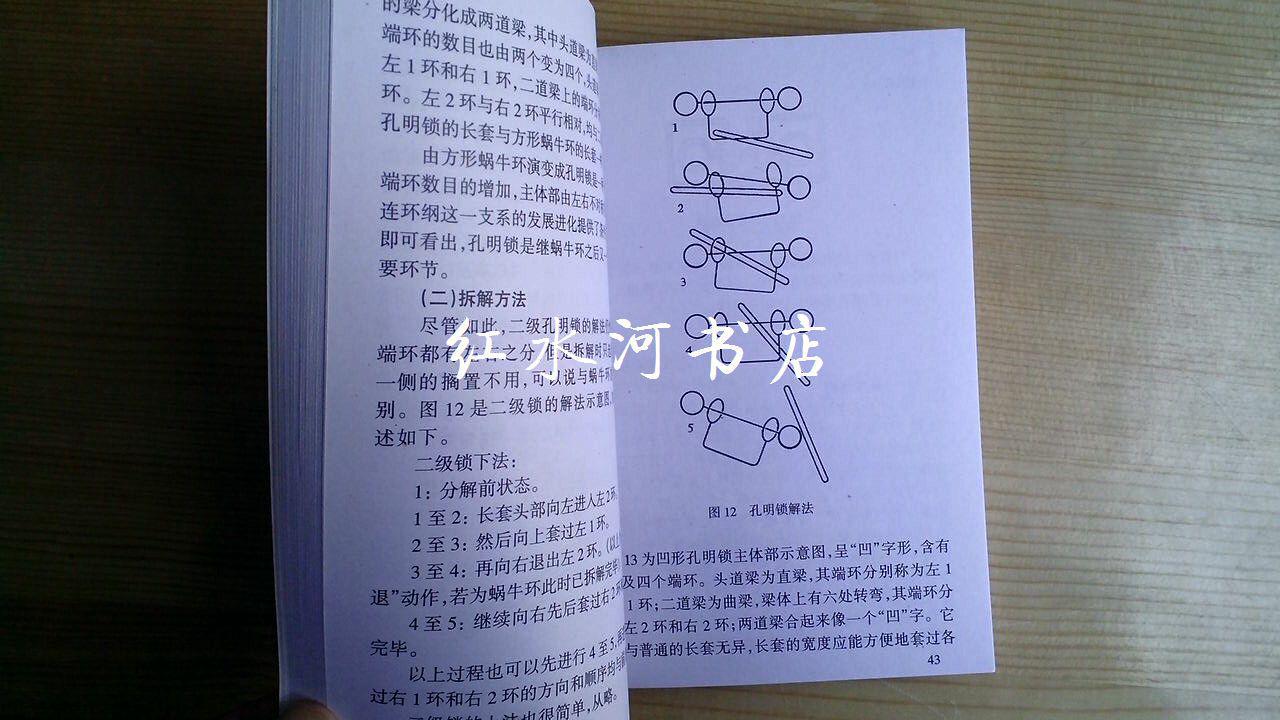 的梁分化成两道梁,其中头道梁为直
端环的数目也由两个变为四个,头道
左1环和右1环,二道梁上的端环
环。左2环与右2环平行相对,均与
孔明锁的长套与方形蜗牛环的长套
由方形蜗牛环演变成孔明锁是一
端环数目的增加,主体部由左右不对
连环纲这一支系的发展进化提供了
即可看出,孔明锁是继蜗牛环之后又一
要环节。
(二)拆解方法
尽管如此,二级孔明锁的解法
端环都有左右之分,但是拆解时只
一侧的搁置不用,可以说与蜗牛环
别。图12是二级锁的解法示意图,
述如下。
二级锁下法:
1:分解前状态。
1至2:长套头部向左进入左2环。
2至3:然后向上套过左1环。
3至4:再向右退出左2环。(以上
退”动作,若为蜗牛环此时已拆解完毕)
4至5:继续向右先后套过右2环
完毕。
以上过程也可以先进行4至5,
过右1环和右2环的方向和顺序均与
二级锁的上法也很简单,从略。
1
2
3
4
5
图12 孔明锁解法
13为凹形孔明锁主体部示意图,呈“凹”字形,含有
及四个端环。头道梁为直梁,其端环分别称为左1
1环;二道梁为曲梁,梁体上有六处转弯,其端环分
左2环和右2环;两道梁合起来像一个“凹”字。它
与普通的长套无异,长套的宽度应能方便地套过各
43
红水河书店